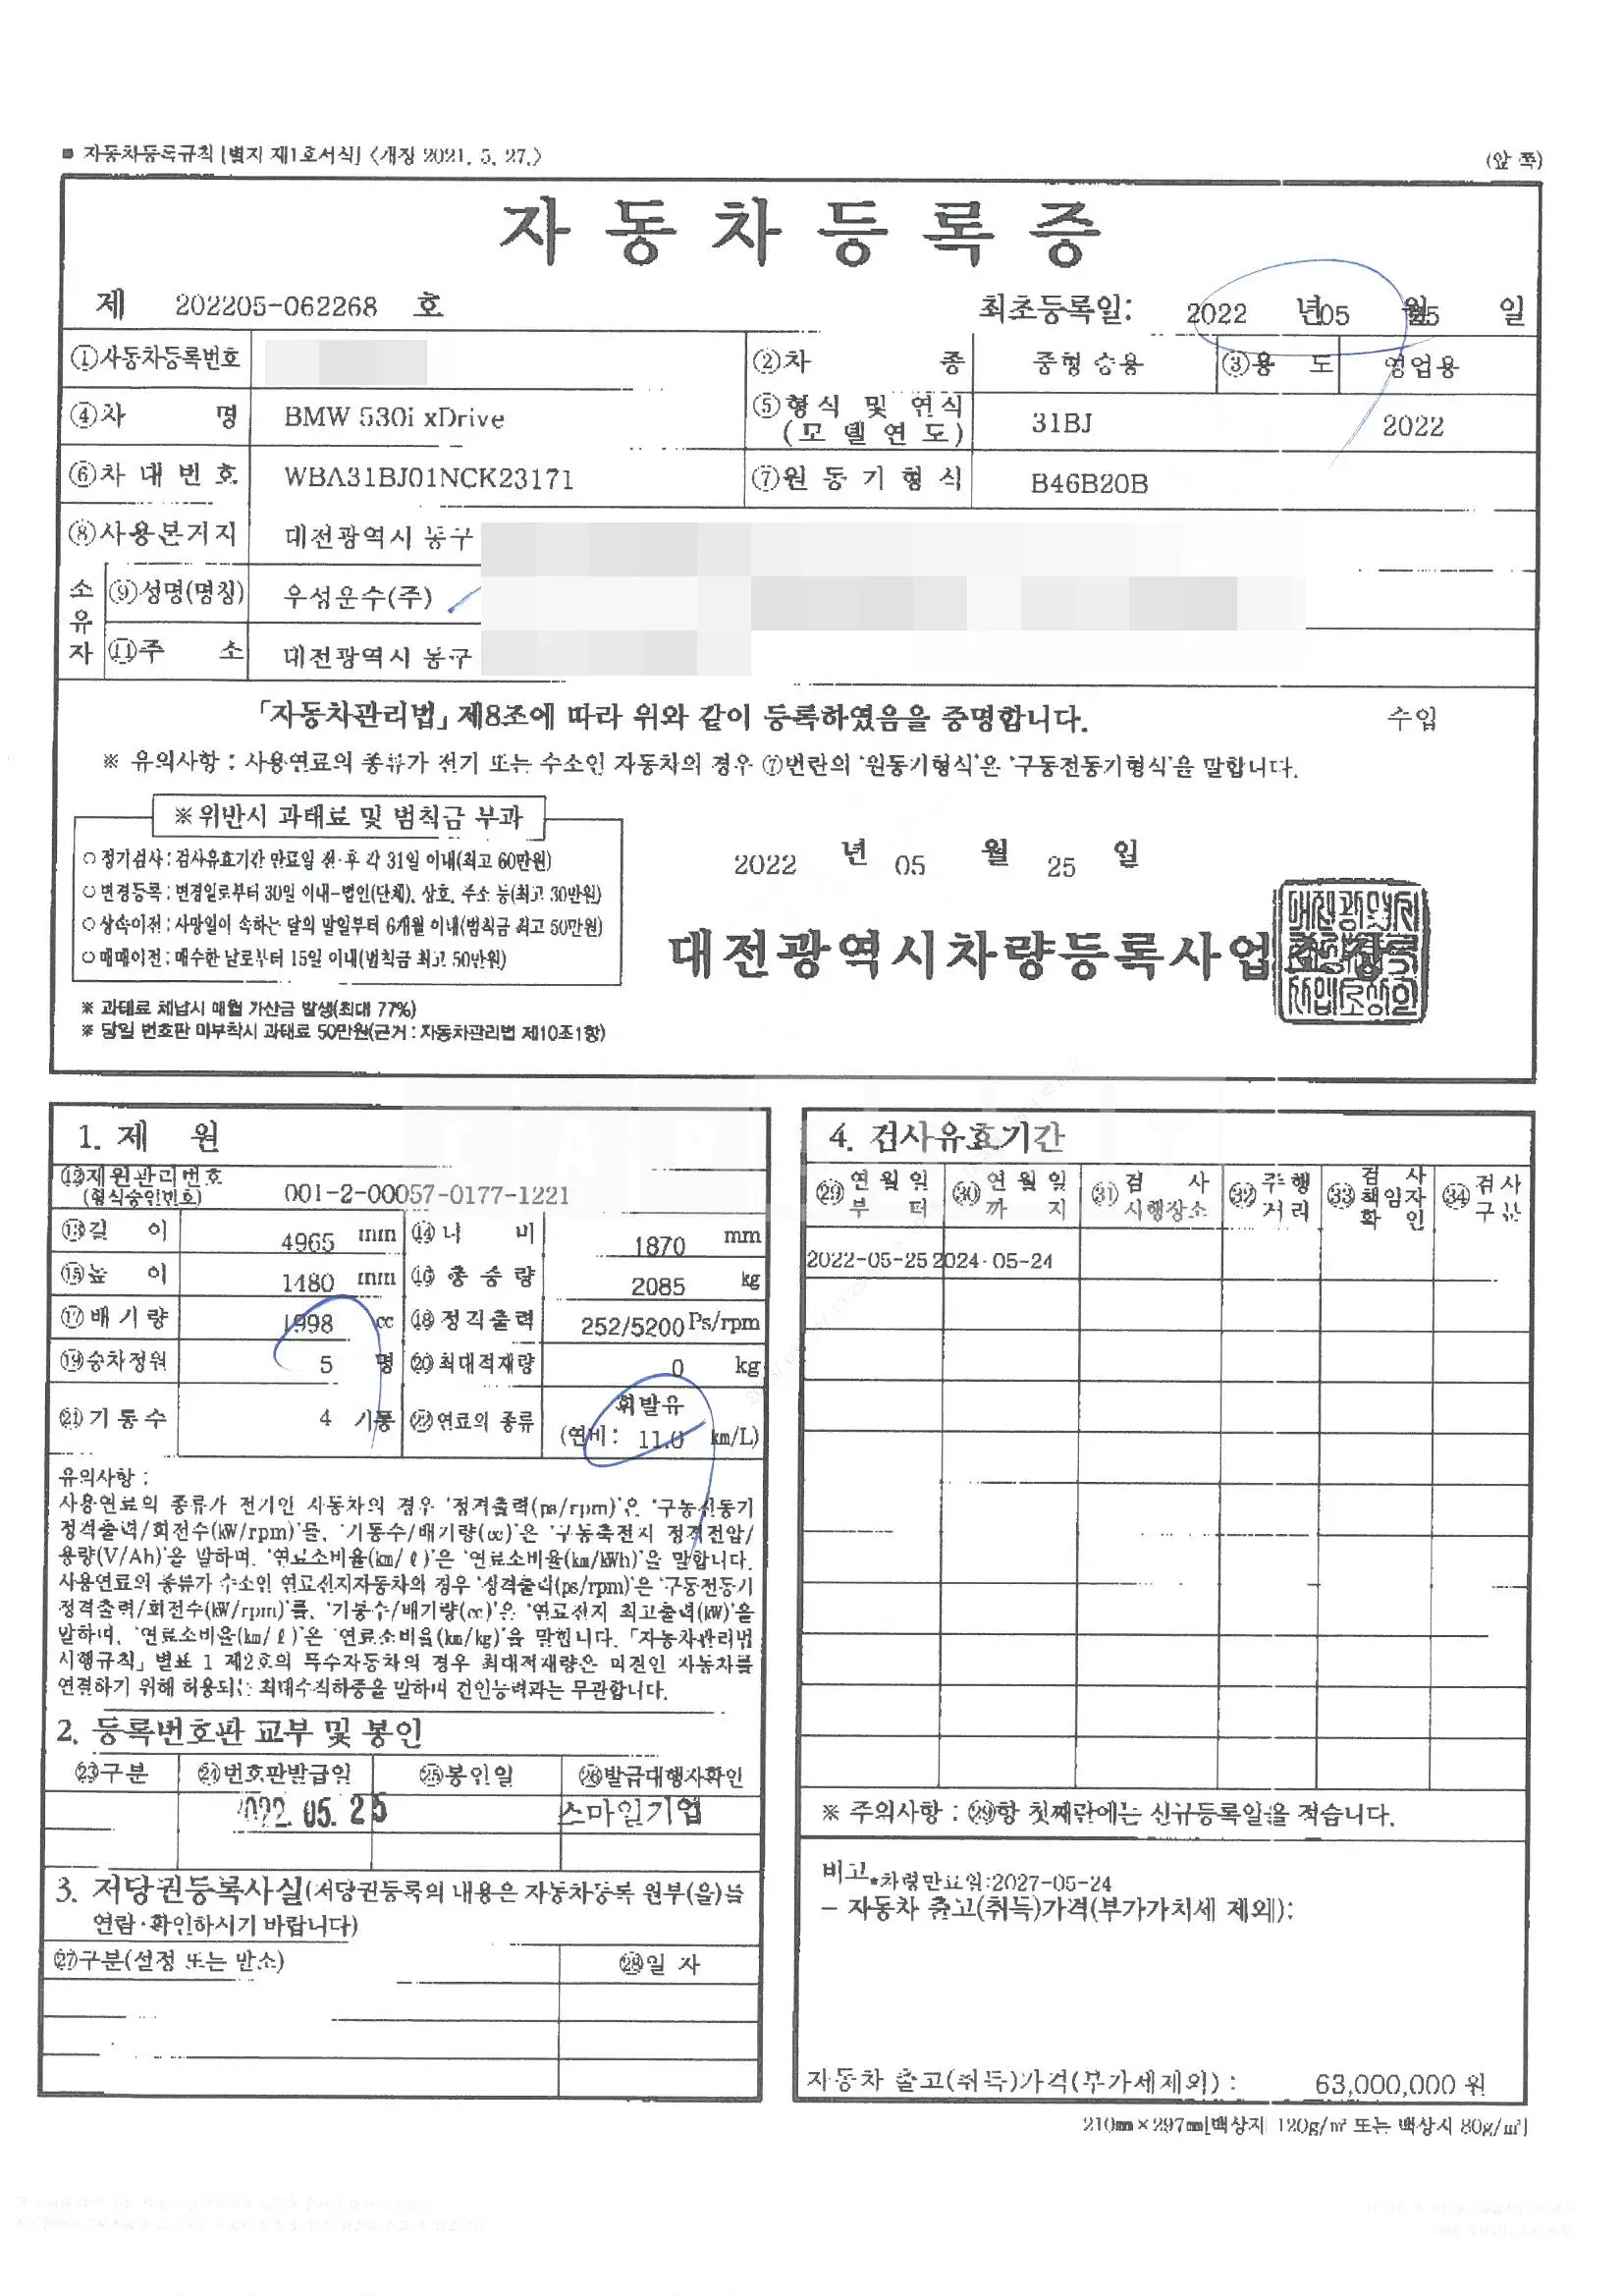 ■ 자동차등록규칙 [별지 제1호서식] <개정 2021. 5. 27.>
(앞 쪽)
자 동 차 등 록 증
제 202205-062268 호
최초등록일: 2022 년 05 월 25 일
①자동차등록번호
②차 종 중형 승용 ③용 도 영업용
④차 명 BMW 530i xDrive
⑤형식 및 연식 (모델연도) 31BJ 2022
⑥차 대 번 호 WBA31BJ01NCK23171
⑦원 동 기 형 식 B46B20B
⑧사용본거지 대전광역시 동구
소유자
⑨성명(명칭) 우성운수(주)
⑪주 소 대전광역시 동구
「자동차관리법」 제8조에 따라 위와 같이 등록하였음을 증명합니다.
수입
※ 유의사항 : 사용연료의 종류가 전기 또는 수소인 자동차의 경우 ⑦번란의 '원동기형식'은 '구동전동기형식'을 말합니다.
※위반시 과태료 및 범칙금 부과
○정기검사 : 검사유효기간 만료일 전·후 각 31일 이내(최고 60만원)
○변경등록 : 변경일로부터 30일 이내-법인(단체), 상호, 주소 등(최고 30만원)
○상속이전 : 사망일이 속하는 달의 말일부터 6개월 이내(범칙금 최고 50만원)
○매매이전 : 매수한 날로부터 15일 이내(범칙금 최고 50만원)
※ 과태료 체납시 매월 가산금 발생(최대 77%)
※ 당일 번호판 미부착시 과태료 50만원(근거 : 자동차관리법 제10조1항)
2022 년 05 월 25 일
대전광역시차량등록사업
1. 제 원
⑫제원관리번호 (형식승인번호) 001-2-00057-0177-1221
⑬길 이 4965 mm ⑭너 비 1870 mm
⑮높 이 1480 mm ⑯총 중 량 2085 kg
⑰배 기 량 1998 cc ⑱정격출력 252/5200 Ps/rpm
⑲승차정원 5 명 ⑳최대적재량 0 kg
㉑기 통 수 4 기통 ㉒연료의 종류 휘발유
(연비: 11.0 km/L)
유의사항 :
사용연료의 종류가 전기인 자동차의 경우 '정격출력(ps/rpm)'은 '구동전동기
정격출력/회전수(kW/rpm)'를, '기통수/배기량(cc)'은 '구동축전지 정격전압/
용량(V/Ah)'을 말하며, '연료소비율(km/ℓ)'은 '연료소비율(km/kWh)'을 말합니다.
사용연료의 종류가 수소인 연료전지자동차의 경우 '정격출력(ps/rpm)'은 '구동전동기
정격출력/회전수(kW/rpm)'를, '기통수/배기량(cc)'은 '연료전지 최고출력(kW)'을
말하며, '연료소비율(km/ℓ)'은 '연료소비율(km/kg)'을 말합니다. 「자동차관리법
시행규칙」 별표 1 제2호의 특수자동차의 경우 최대적재량은 피견인 자동차를
연결하기 위해 허용되는 최대수직하중을 말하며 견인능력과는 무관합니다.
2. 등록번호판 교부 및 봉인
㉓구분 ㉔번호판발급일 ㉕봉인일 ㉖발급대행자확인
2022. 05. 25 스마일기업
3. 저당권등록사실(저당권등록의 내용은 자동차등록 원부(을)를
열람·확인하시기 바랍니다)
㉗구분(설정 또는 말소) ㉘일 자
4. 검사유효기간
㉙연월일부터 ㉚연월일까지 ㉛검사시행장소 ㉜주행거리 ㉝검사책임자확인 ㉞검사구분
2022-05-25 2024-05-24
※ 주의사항 : ㉙항 첫째란에는 신규등록일을 적습니다.
비고 *차령만료일:2027-05-24
- 자동차 출고(취득)가격(부가가치세 제외):
자동차 출고(취득)가격(부가세제외) : 63,000,000 원
210㎜×297㎜[백상지 120g/㎡ 또는 백상지 80g/㎡]